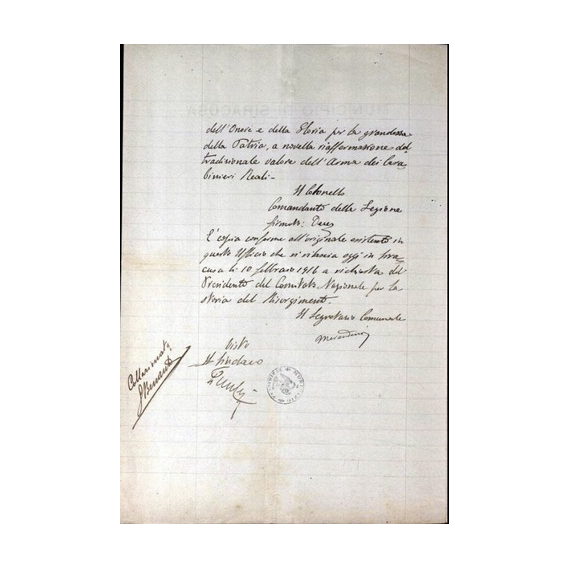 dell'Onore e della Gloria per la grandezza
della Patria, a novella riaffermazione del
tradizionale valore dell'Arma dei Cara
binieri Reali-
Il Colonnello
Comandante della Legione
firmato:
E' copia conforme all'originale esistente in
questo Ufficio che si rilascia oggi in Sira
cusa lì 10 febbraio 1916 a richiesta del
Presidente del Comitato Nazionale per la
storia del Risorgimento.
Il Segretario Comunale
Visto
Il Sindaco